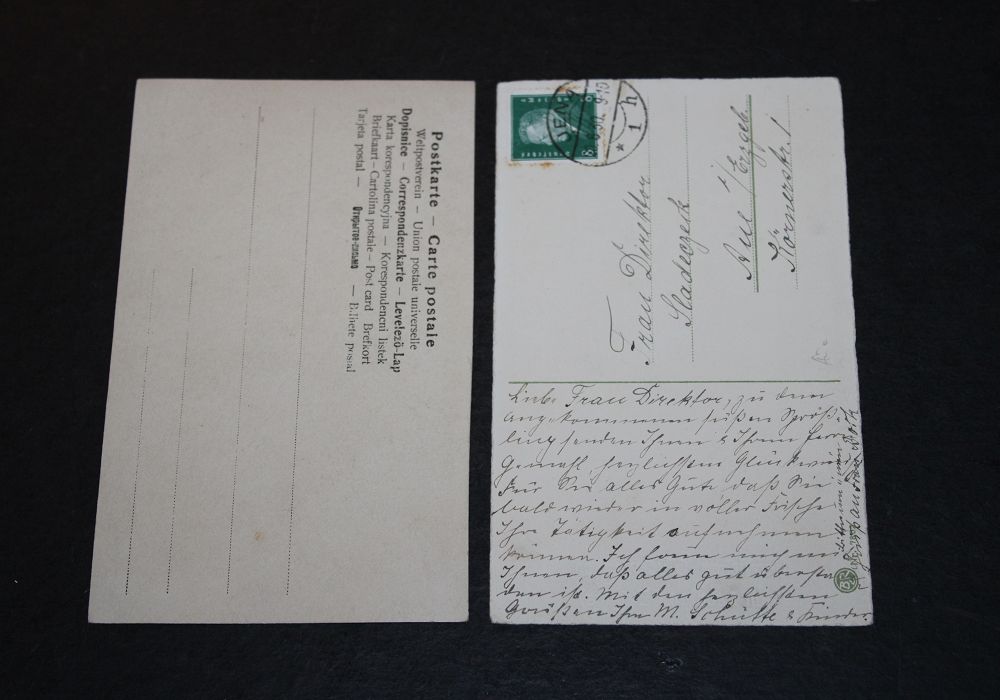 Postkarte — Carte postale
Weltpostverein — Union postale universelle
Dopisnice — Correspondenzkarte — Levelező-Lap
Karta korespondencyjna — Korespondencni listek
Briefkaart — Cartolina postale — Post card Brefkort
Tarjeta postal — Открытое письмо — Bilhete postal
JENA
9-10
* 1 h
8 8
Frau Direktor
Aue i/Erzgeb.
Körnerstr. 1
Liebe Frau Direktor, zu dem
angekommenen süßen Spröß-
ling senden Ihnen & Ihrem Herrn
Gemahl herzlichsten Glückwunsch
Für Sie alles Gute, daß Sie
bald wieder in voller Frische
Ihre Tätigkeit aufnehmen
können. Ich freue mich mit
Ihnen, daß alles gut überstan-
den ist. Mit den herzlichsten
Grüßen Ihre M. Schütte & Kinder.